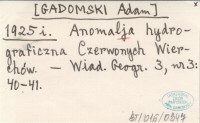 [GADOMSKI Adam]
1925 i. Anomalja hydro-
graficzna Czerwonych Wier-
chów. — Wiad. Geogr. 3, nr 3:
40-41.